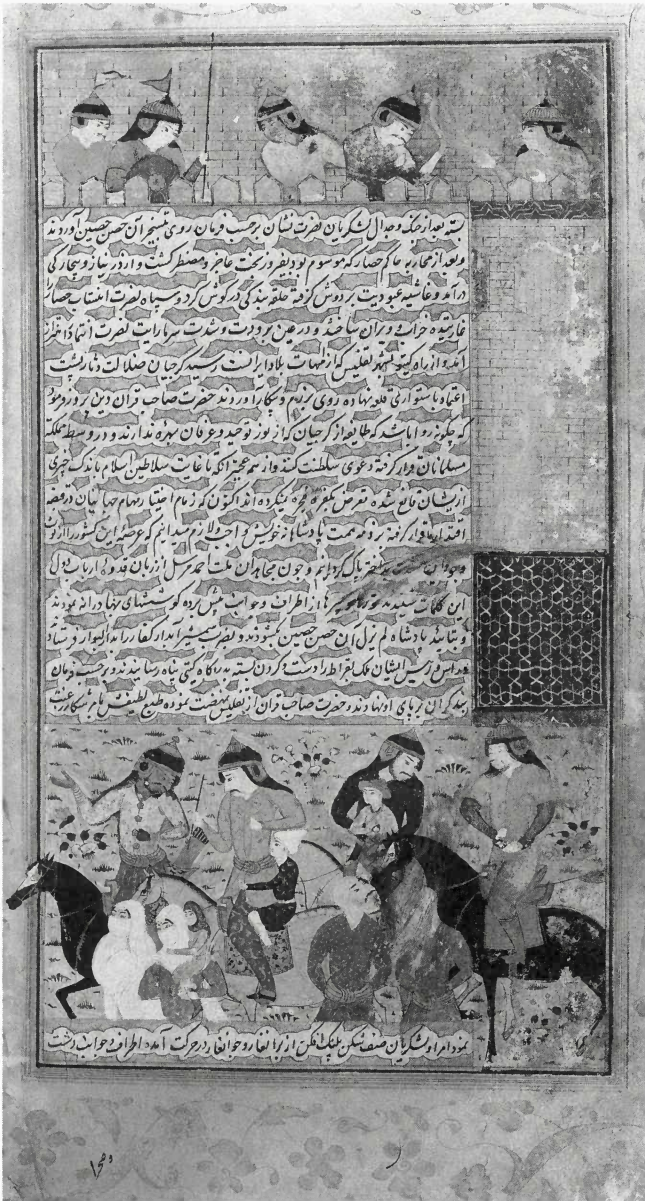 بسته بعد از جنگ و جدال لشکریان نصرت نشان بر حسب فرمان روی بتسخیر آن حصن حصین آوردند
و بعد از محاربه حاکم حصار که موسوم بود بفیروز بخت عاجز و مضطر گشت و از در نیاز و بیچارگی
درآمد و غاشیه عبودیت بر دوش گرفته حلقه بندگی در گوش کرد و سپاه نصرت انتساب حصار را
غارتیده خراب و ویران ساختند و در عین برودت و شدت سرما رایت نصرت
آمد و از راه بشهر تفلیس که از امهات بلاد ایرانست رسید گرجیان ضلالت دثار پشت
اعتماد باستواری قلعه نهاده روی برزم و پیکار آوردند حضرت صاحب قران دین پرور فرمود
که چگونه روا باشد که طایفه از گرجیان که از نور توحید و عرفان بهره ندارند و در وسط مملکه
مسلمانان قرار گرفته دعوی سلطنت کنند و از همه عجبتر آنکه تا غایت سلاطین اسلام باندک چیزی
از یشان قانع شده تعرض بکفره فجره نمیکرده اند اکنون که زمام اختیار مهام جهانیان در قبضه
اقتدار ما قرار گرفته بر ذمه همت پادشاهانه خویش واجب و لازم میدانم که عرصه این کشور را از لوث
وجود این پاک گردانم و چون مجاهدان ملت احمد مرسل از زبان قدوه ارباب دول
این کلمات شنیدند از اطراف و جوانب پیش برده کوششهای بهادرانه نمودند
و بتایید پادشاه لم یزل آن حصن حصین گشودند و بضرب شمشیر آبدار کفار را
و رئیس ایشان ملک بقراط را دست و گردن بسته بدرگاه گیتی پناه رسانیدند و بر حسب فرمان
بند گران بر پای او نهادند و حضرت صاحب قران از تفلیس نهضت نموده طبع لطیفش بشکار رغبت
نمود امرا و لشکریان صف شکن پلنگ افکن از برانغار و جوانغار در حرکت آمده اطراف و جوانب دشت